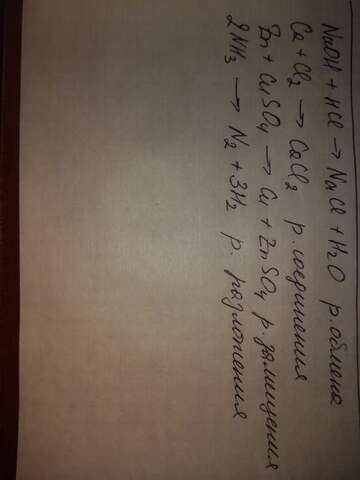 NaOH + HCl → NaCl + H2O р. обмена
Ca + Cl2 → CaCl2 р. соединения
Zn + CuSO4 → Cu + ZnSO4 р. замещения
2NH3 → N2 + 3H2 р. разложения